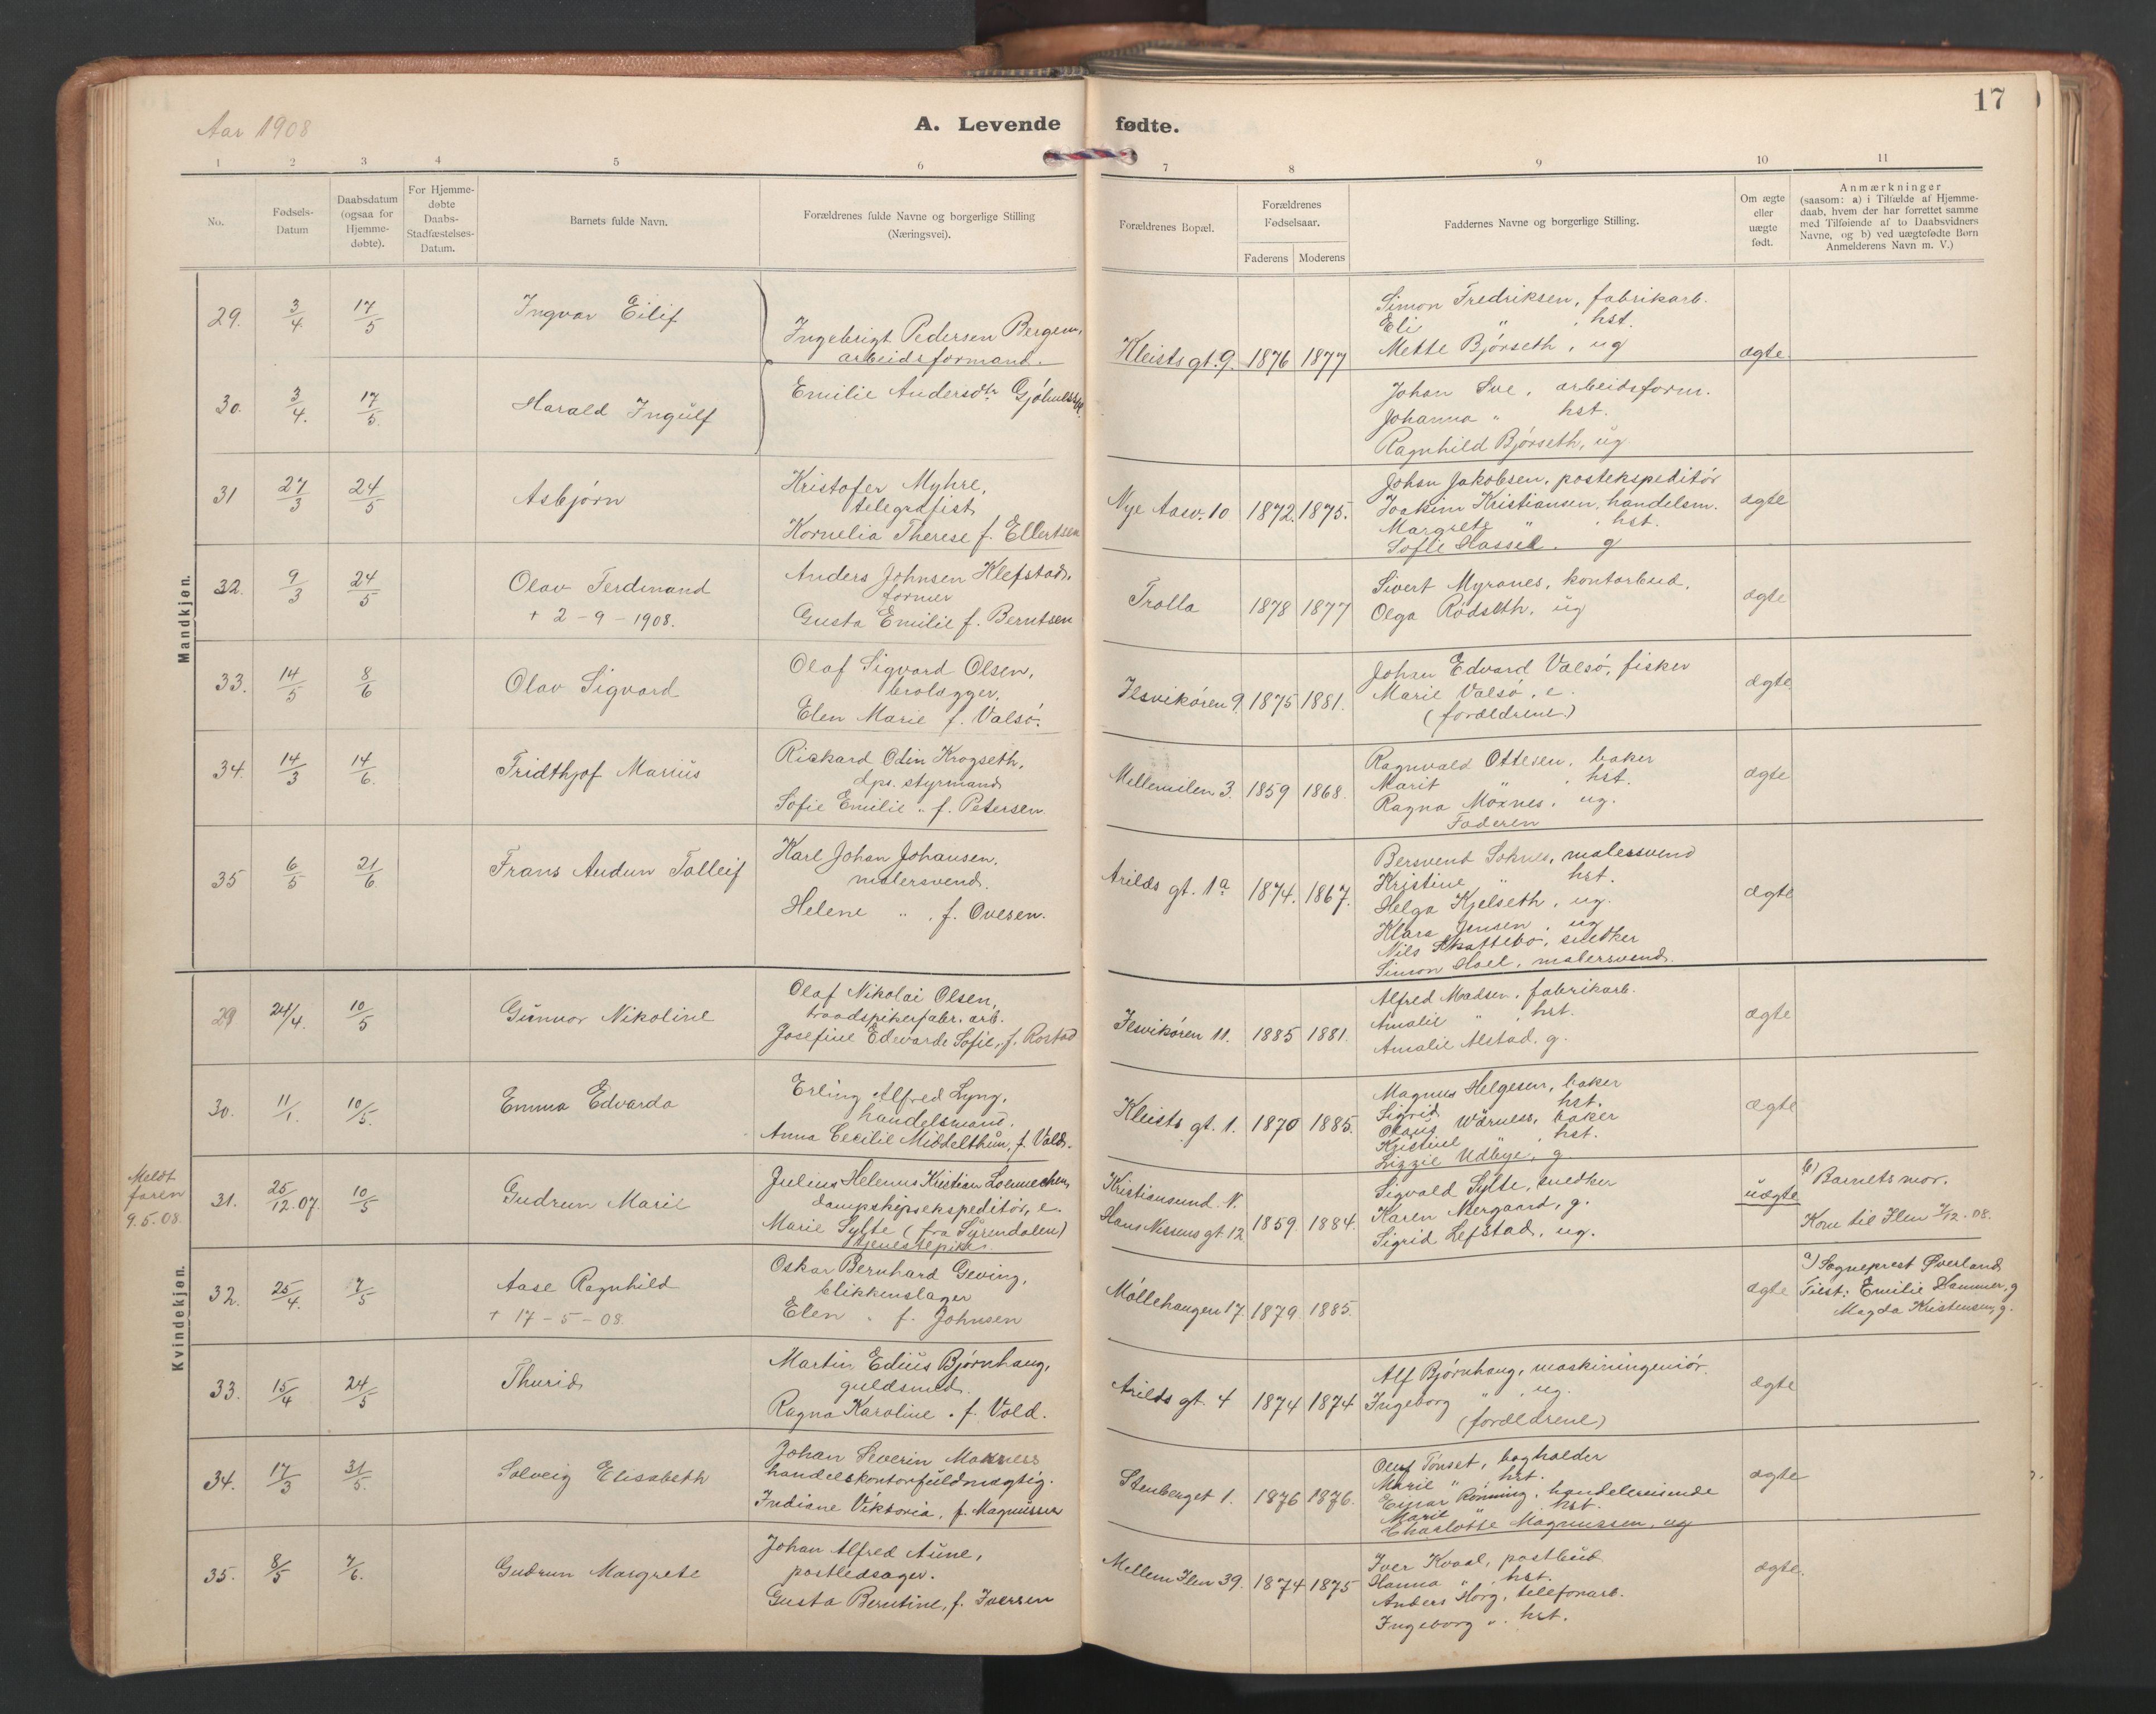 Aar 1908
A. Levende fødte.
17
1 2 3 4 5 6 7 8 9 10 11
No.
Fødsels-
Datum
Daabsdatum
(ogsaa for
Hjemme-
døbte).
For Hjemme-
døbte
Daabs-
Stadfæstelses-
Datum.
Barnets fulde Navn.
Forældrenes fulde Navne og borgerlige Stilling
(Næringsvei).
Forældrenes Bopæl.
Forældrenes
Fødselsaar.
Faderens Moderens
Faddernes Navne og borgerlige Stilling.
Om ægte
eller
uægte
født.
Anmærkninger
(saasom: a) i Tilfælde af Hjemme-
daab, hvem der har forrettet samme
med Tilføiende af to Daabsvidners
Navne, og b) ved uægtefødte Børn
Anmelderens Navn m. V.)
Mandkjøn.
29. 3/4 17/5 Ingvar Eilif
Ingebrigt Pedersen Bergem,
arbeidsformand.
Kleists gt. 9. 1876 1877
Simon Fredriksen, fabrikarb.
Eli " , hst.
Mette Bjørseth, ug
ægte
30. 3/4. 17/5. Harald Ingulf
Emilie Andersdtr
Johan Sve, arbeidsform.
Johanna " hst.
Ragnhild Bjørseth, ug
31 27/3 24/5 Asbjørn
Kristofer Myhre,
telegrafist
Kornelia Therese f. Ellertsen
Nye Aasv. 10 1872. 1875.
Johan Jakobsen, postekspeditør
Joakim Kristiansen, handelsm.
Margrete " , hst.
Sofie Hassel. g
ægte
32. 9/3 24/5 Olav Ferdinand
+ 2-9-1908.
Anders Johnsen Klefstad,
former
Gusta Emilie f. Berntsen
Trolla 1878 1877
Sivert Myranes, kontorbud.
Olga Rødseth, ug
ægte
33. 14/5 8/6 Olav Sigvard
Olaf Sigvard Olsen,
brolægger.
Elen Marie f. Valsø.
Ilsvikøren 9. 1875 1881.
Johan Edvard Valsø, fisker
Marie Valsø, e.
(forældrene.)
ægte
34. 14/3 14/6. Fridthjof Marius
Rickard Odin Krogseth,
dps. styrmand
Sofie Emilie " f. Petersen.
Mellemilen 3. 1859 1868.
Ragnvald Ottesen, baker
Marit " , hst.
Ragna Moxnes, ug.
Faderen
ægte
35 6/5 21/6. Frans Audun Tolleif
Karl Johan Johansen,
malersvend.
Helene " , f. Ovesen.
Arilds gt. 1a 1874. 1867.
Bersvent Soknes, malersvend
Kristine " hst.
Helga Kjelseth, ug.
Klara Jensen, ug
Nils Skattebo, snedker
Simon Hoel, malersvend.
ægte
Kvindekjøn.
29 24/4. 10/5 Gunvor Nikoline
Olaf Nikolai Olsen,
traadspikerfabr. arb.
Josefine Edvarda Sofie, f. Rostad
Ilsvikøren 11. 1885 1881.
Alfred Madsen, fabrikarb.
Amalie " , hst.
Amalie Alstad. g.
ægte
30. 11/1. 10/5. Emma Edvarda
Erling Alfred Lyng,
handelsmand.
Anna Cecilie Middelthun, f. Vald.
Kleists gt. 1. 1870 1885.
Magnus Helgesen, baker
Sigrid hst.
Olaus Wärness, baker
Kristine " , hst.
Lizzie Udbye, g.
ægte
Meldt
faren
9.5.08.
31. 25/12.07. 10/5 Gudrun Marie
Julius Helenus Kristian Lonnechen,
dampskipsekspeditør, e.
Marie Sylte (fra Surendalen)
tjenestepike.
Kristiansund. N.
Hans Nissens gt. 12 1859. 1884.
Sigvald Sylte, snedker
Karen Mergaard, g.
Sigrid Lefstad, ug.
uægte
b) Barnets mor.
Kom til Ilen 7/12-08.
32. 25/4. 7/5 Aase Ragnhild
+ 17-5-08.
Oskar Bernhard Geving,
blikkenslager
Elen " f. Johnsen
Møllehaugen 17. 1879. 1885.
ægte
a) Sogneprest Øverland
Test: Emilie Hammer, g
Magda Kristensen, g.
33. 15/4 24/5 Thurid
Martin Edius Bjørnhaug,
guldsmed.
Ragna Karoline . f. Vold.
Arilds gt. 4 1874 1874
Alf Bjørnhaug, maskiningeniør.
Ingeborg " , ug.
(forældrene)
ægte
34. 17/3 31/5. Solveig Elisabeth
Johan Severin Moxness
handelskontorfuldmægtig.
Indiane Viktoria, f. Magnussen
Stenberget 1. 1876 1876.
Oluf Tønset, bogholder
Marie " , hst.
Einar Rønning, handelsreisende
Marie " hst.
Charlotte Magnussen, ug
ægte
35. 8/5 7/6. Gudrun Margrete
Johan Alfred Aune,
postledsager.
Gusta Berntine, f. Iversen
Mellem Ilen 39. 1874 1875
Iver Kvaal, postbud
Hanna " , hst.
Anders Horg, telefonarb.
Ingeborg " . hst.
ægte.